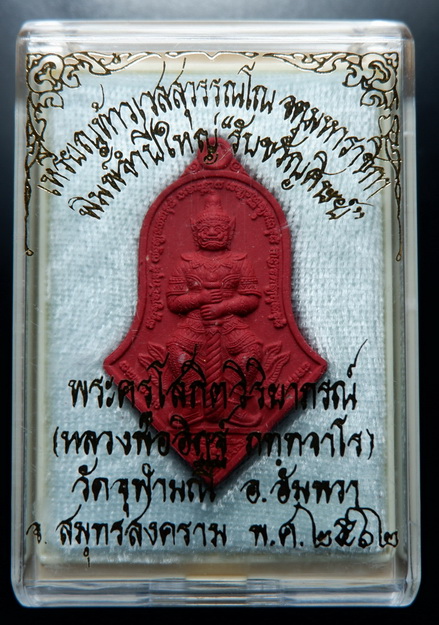 เหรียญท้าวเวสสุวรรณโณ จตุมหาราชิกา
พิมพ์จำปีใหญ่ "รับขวัญศิษย์"
พระครูโสภิตวิริยาภรณ์
(หลวงพ่ออิฏฐ์ ภทฺทจาโร)
วัดจุฬามณี อ.อัมพวา
จ. สมุทรสงคราม พ.ศ.๒๕๖๒